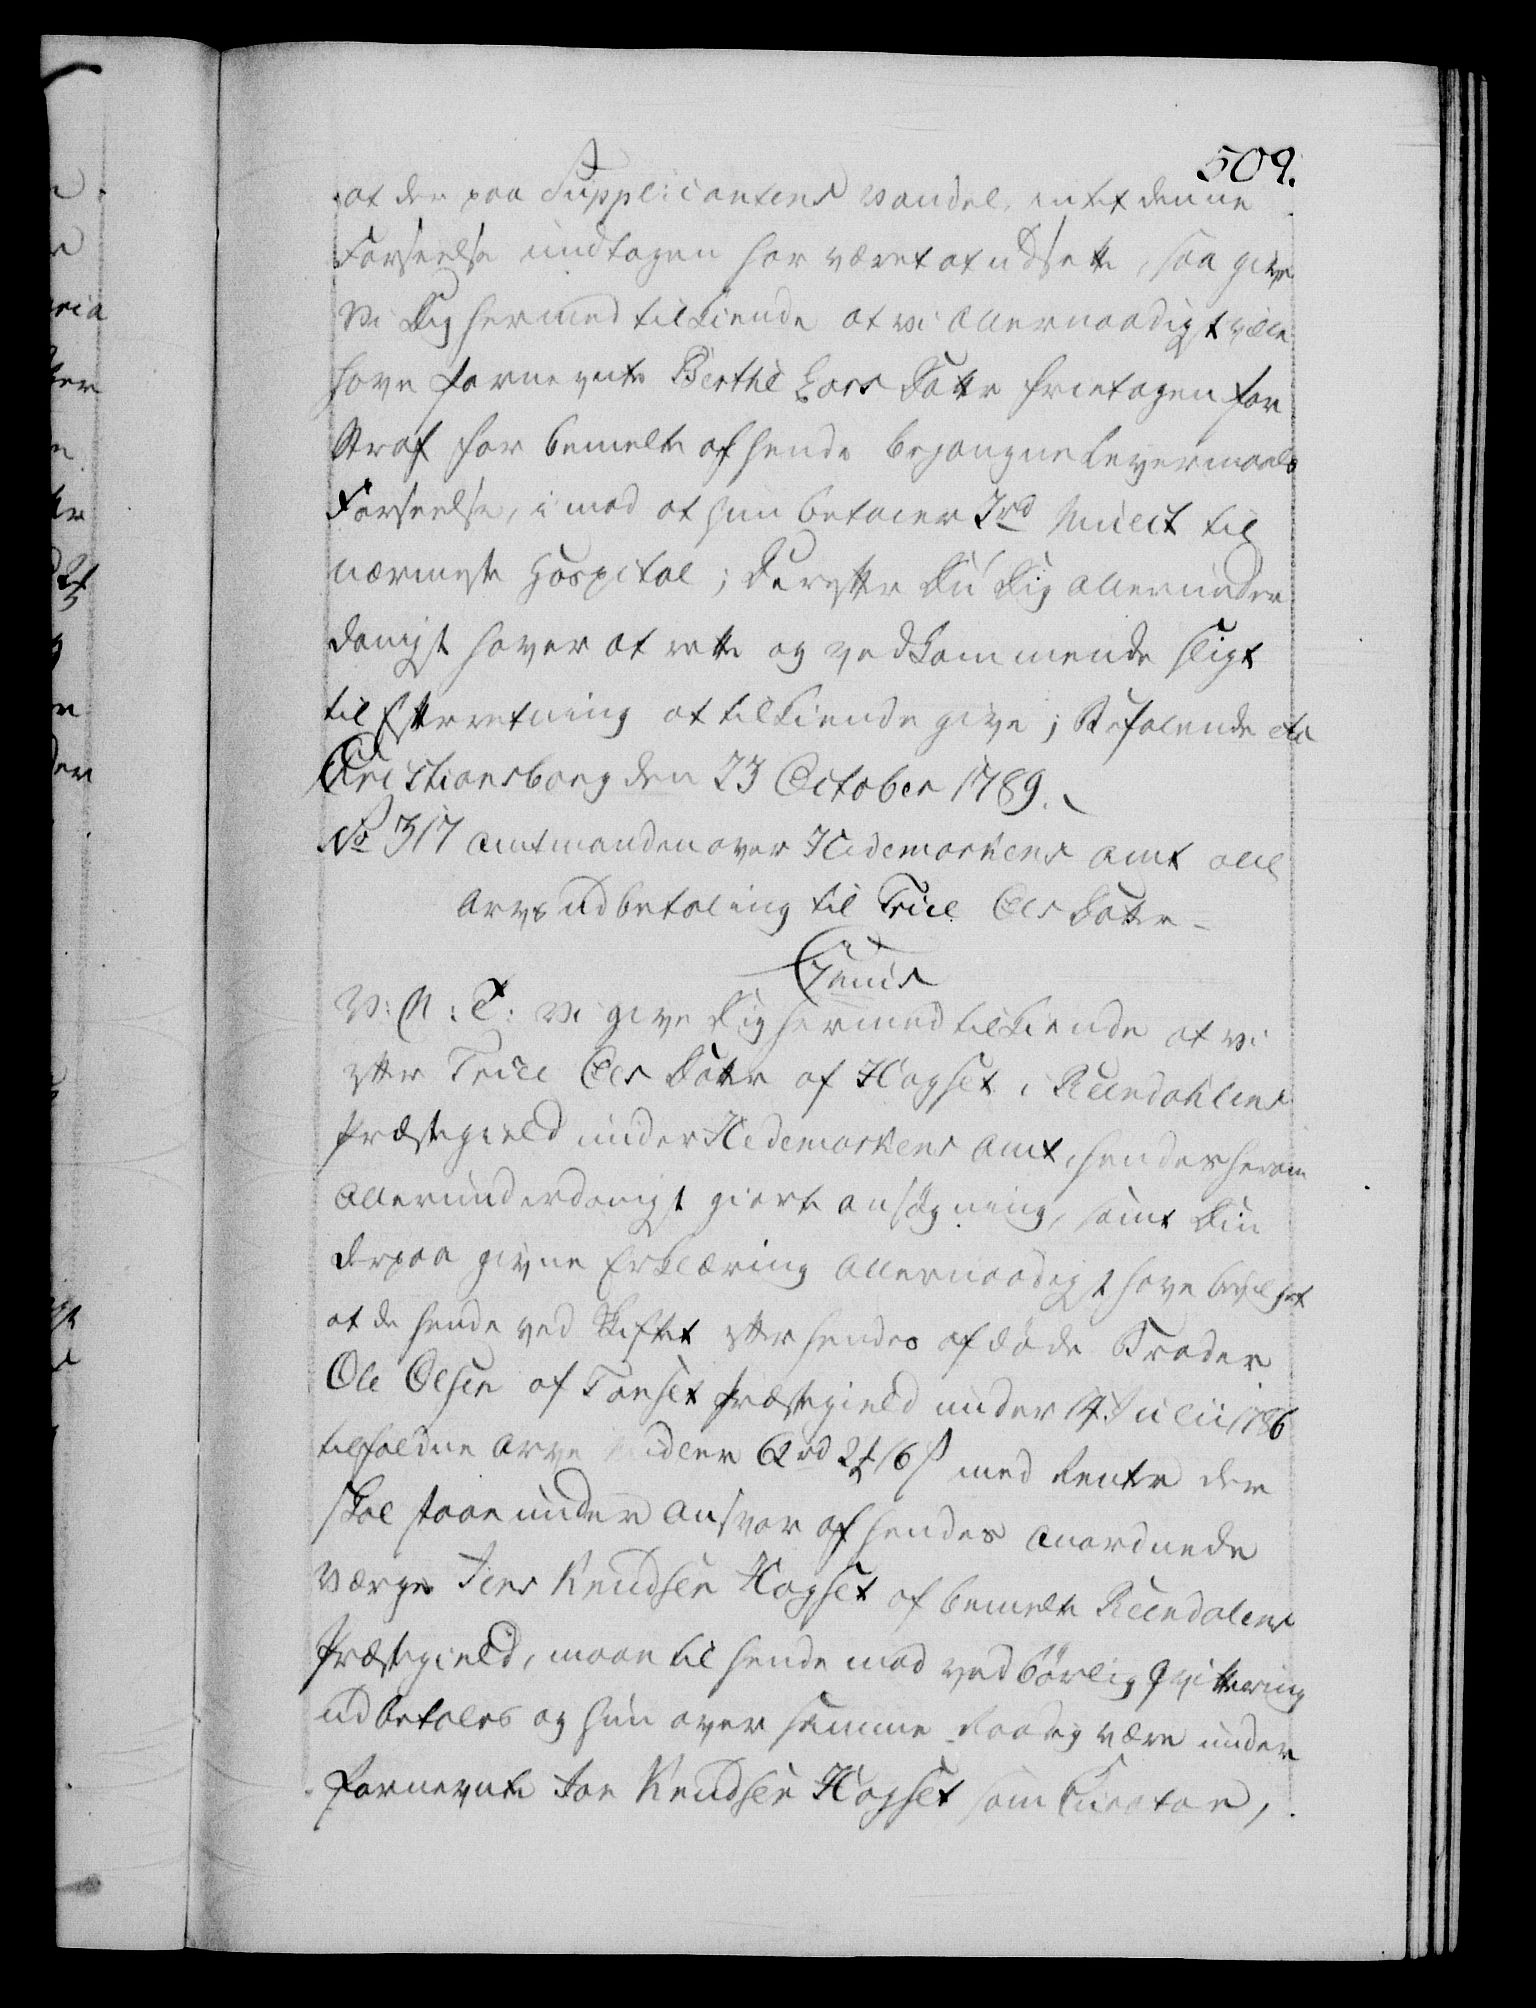 509.
at der paa Supplicantens Vandel, intet denne
Forseelse undtagen har været at udsætte, saa give
Vi Dig hermed tilkiende at vi Allernaadigst ville
have fornevnte Berthe Lars Datter fritagen for
Straf for bemelte af hende begangne Leyermaals
Forseelse, imod at hun betaler 2 rd Mulct til
nærmeste Hospital; Derefter Du Dig allerunder
danigst haver at rette og vedkommende sligt
til Efterretning at tilkiende give; Befalende etc
Christiansborg den 23 October 1789.
No 317 Amtmanden over Hedemarkens Amt all
Arvs Udbetaling til Trile Ols Datter
Genis
V: A: T: Vi give Dig hermed tilkiende at vi
efter Trile Ols Datter af Hagset i Reendahlens
Præstegield under Hedemarkens Amt, hendes herom
Allerunderdanigst giorte Ansøgning, samt Din
derpaa givne Erklæring Allernaadigst have bevilget
at de hende ved Skiftet efter hendes afdøde Broder
Ole Olsen af Tonset Præstegield under 14 Julii 1786
tilfaldne Arve Midler 62 rd 2 ₰ 16 ß med Renter der
skal staae under Ansvar af hendes anordnede
Værge Jens Knudsen Hagset af bemelte Reendalens
Præstegield, maae til hende mod vedbørlig Qvittering
udbetales og hun over samme raadig være under
fornevnte Jon Knudsen Hagset som Curator,